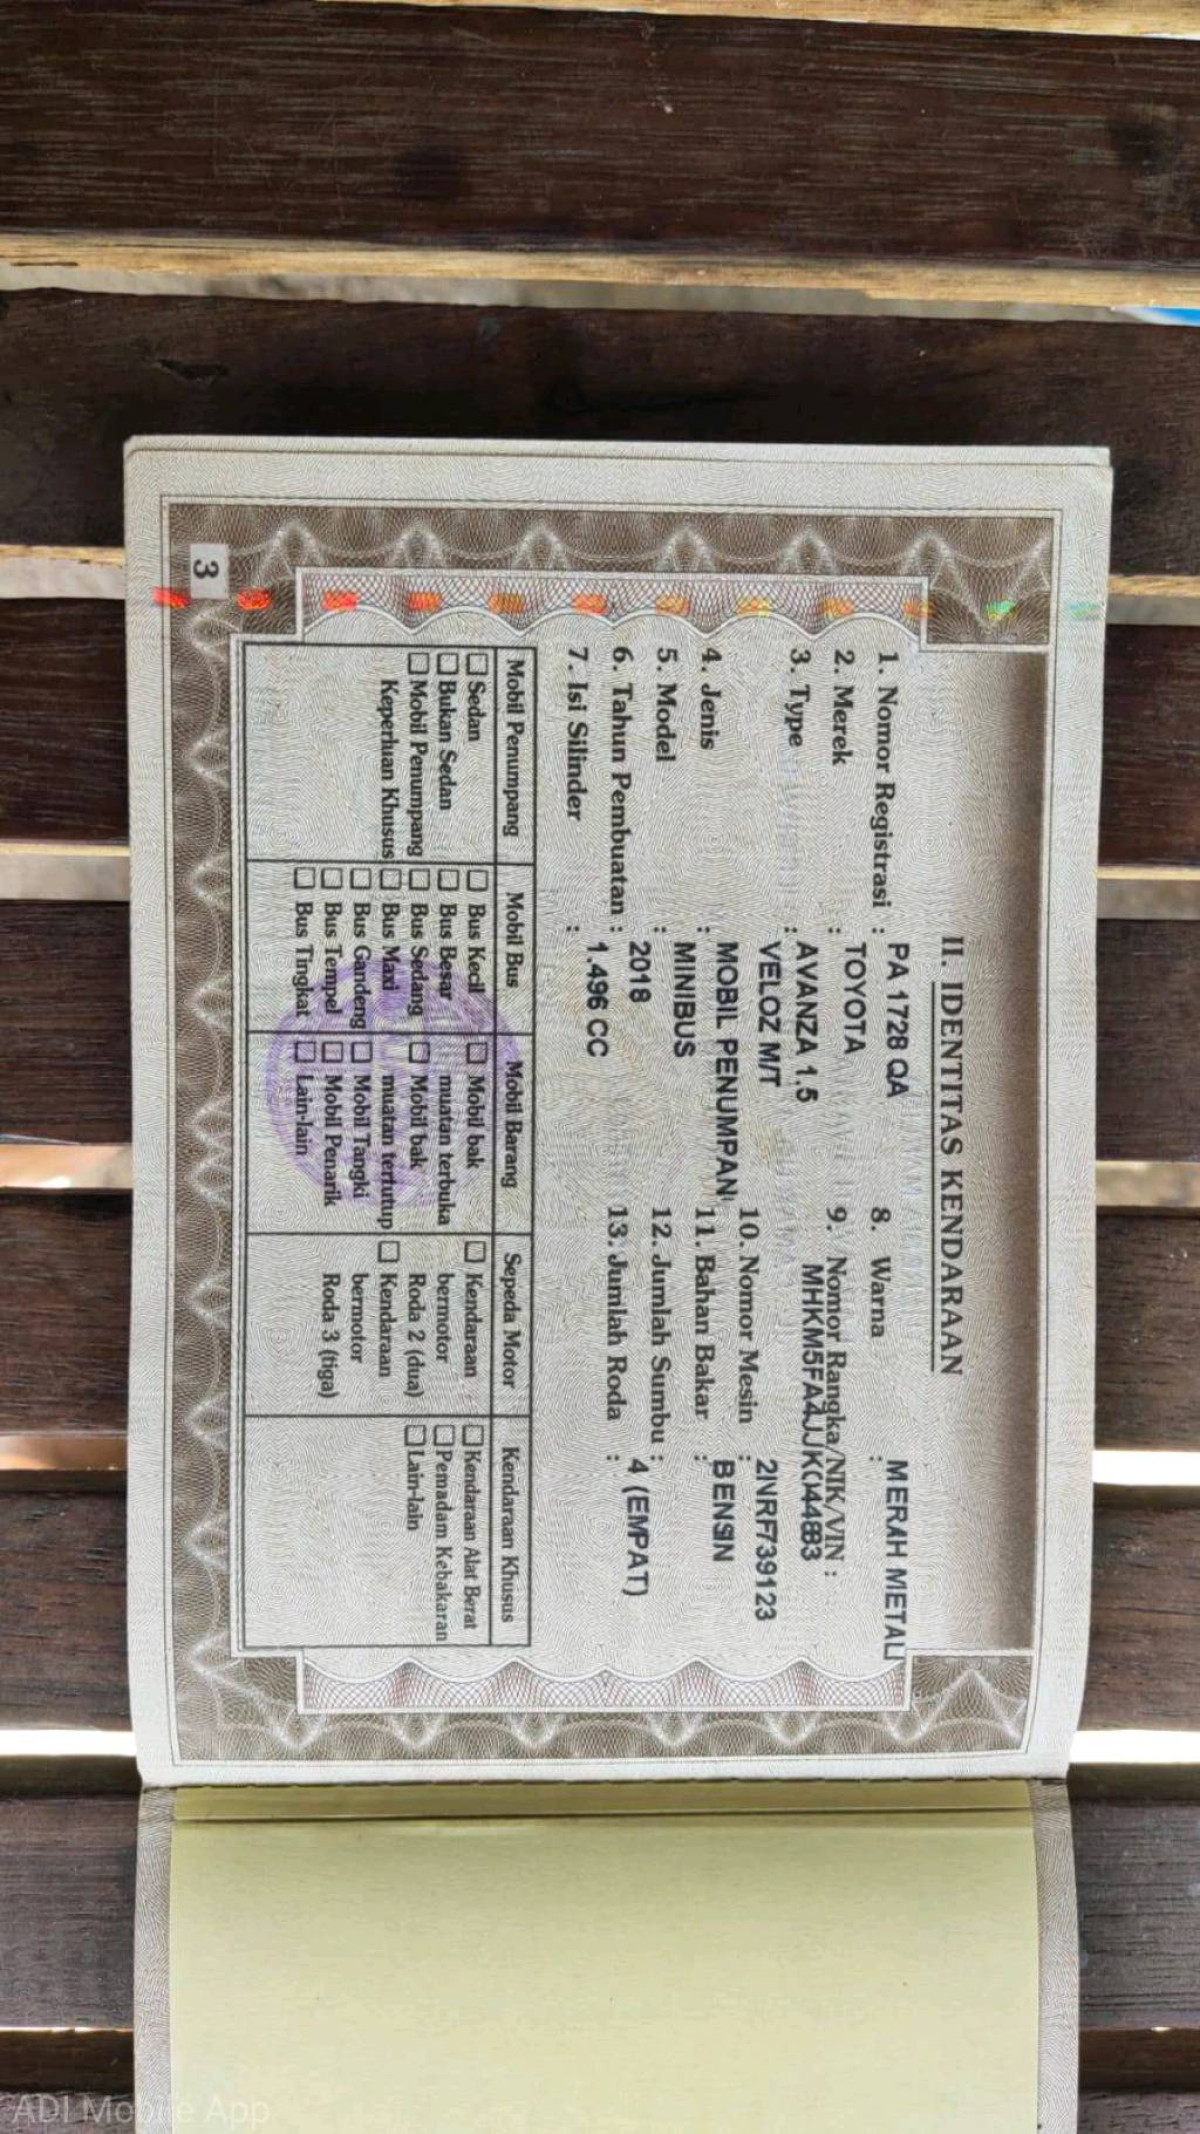 II. IDENTITAS KENDARAAN
1. Nomor Registrasi : PA 1728 QA
2. Merek : TOYOTA
3. Type : AVANZA 1.5
VELOZ M/T
4. Jenis : MOBIL PENUMPAN
5. Model : MINIBUS
6. Tahun Pembuatan : 2018
7. Isi Silinder : 1.496 CC
8. Warna : MERAH METALI
9. Nomor Rangka/NIK/VIN :
10. Nomor Mesin : 2NRF739123
11. Bahan Bakar : BENSIN
12. Jumlah Sumbu :
13. Jumlah Roda : 4 (EMPAT)
Mobil Penumpang
Sedan
Bukan Sedan
Mobil Penumpang
Keperluan Khusus
Mobil Bus
Bus Kecil
Bus Besar
Bus Sedang
Bus Maxi
Bus Gandeng
Bus Tempel
Bus Tingkat
Mobil Barang
Mobil bak
muatan terbuka
Mobil bak
muatan tertutup
Mobil Tangki
Mobil Penarik
Lain-lain
Sepeda Motor
Kendaraan
bermotor
Roda 2 (dua)
Kendaraan
bermotor
Roda 3 (tiga)
Kendaraan Khusus
Kendaraan Alat Berat
Pemadam Kebakaran
Lain-lain
3
ADI Mobile App